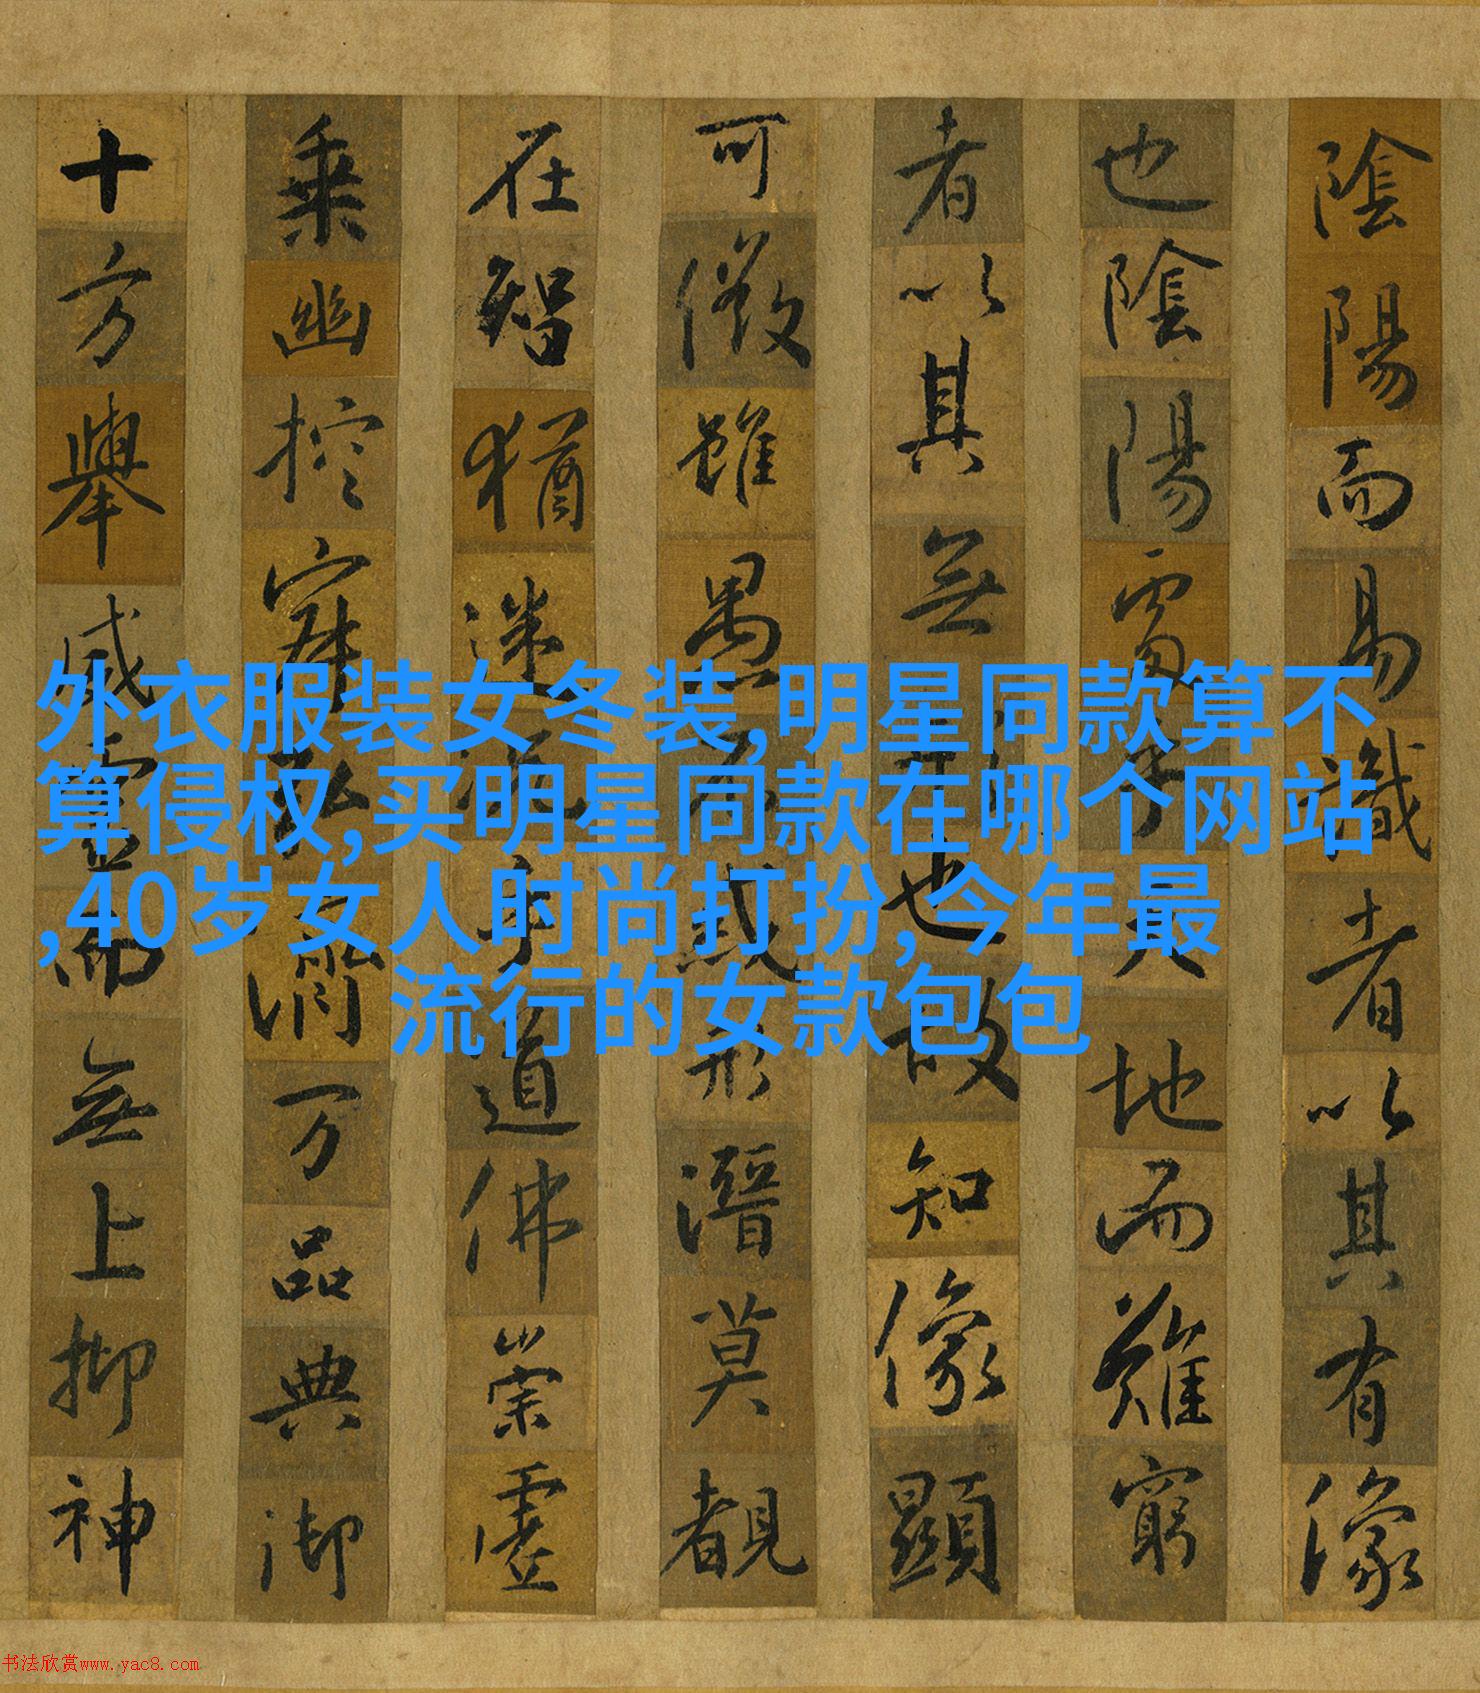 陰陽而易識者以其有像
也陰陽處乎天地而難窮
者以其無形也故知像顯
可徵雖愚不或形潛莫覩
在智猶迷况乎道佛崇虛
乗幽控寂弘濟万品典御
十方舉威靈而無上抑神
外衣服装女冬装,明星同款算不
算侵权,买明星同款在哪个网站
,40岁女人时尚打扮,今年最
流行的女款包包
书法欣赏www.yac8.com